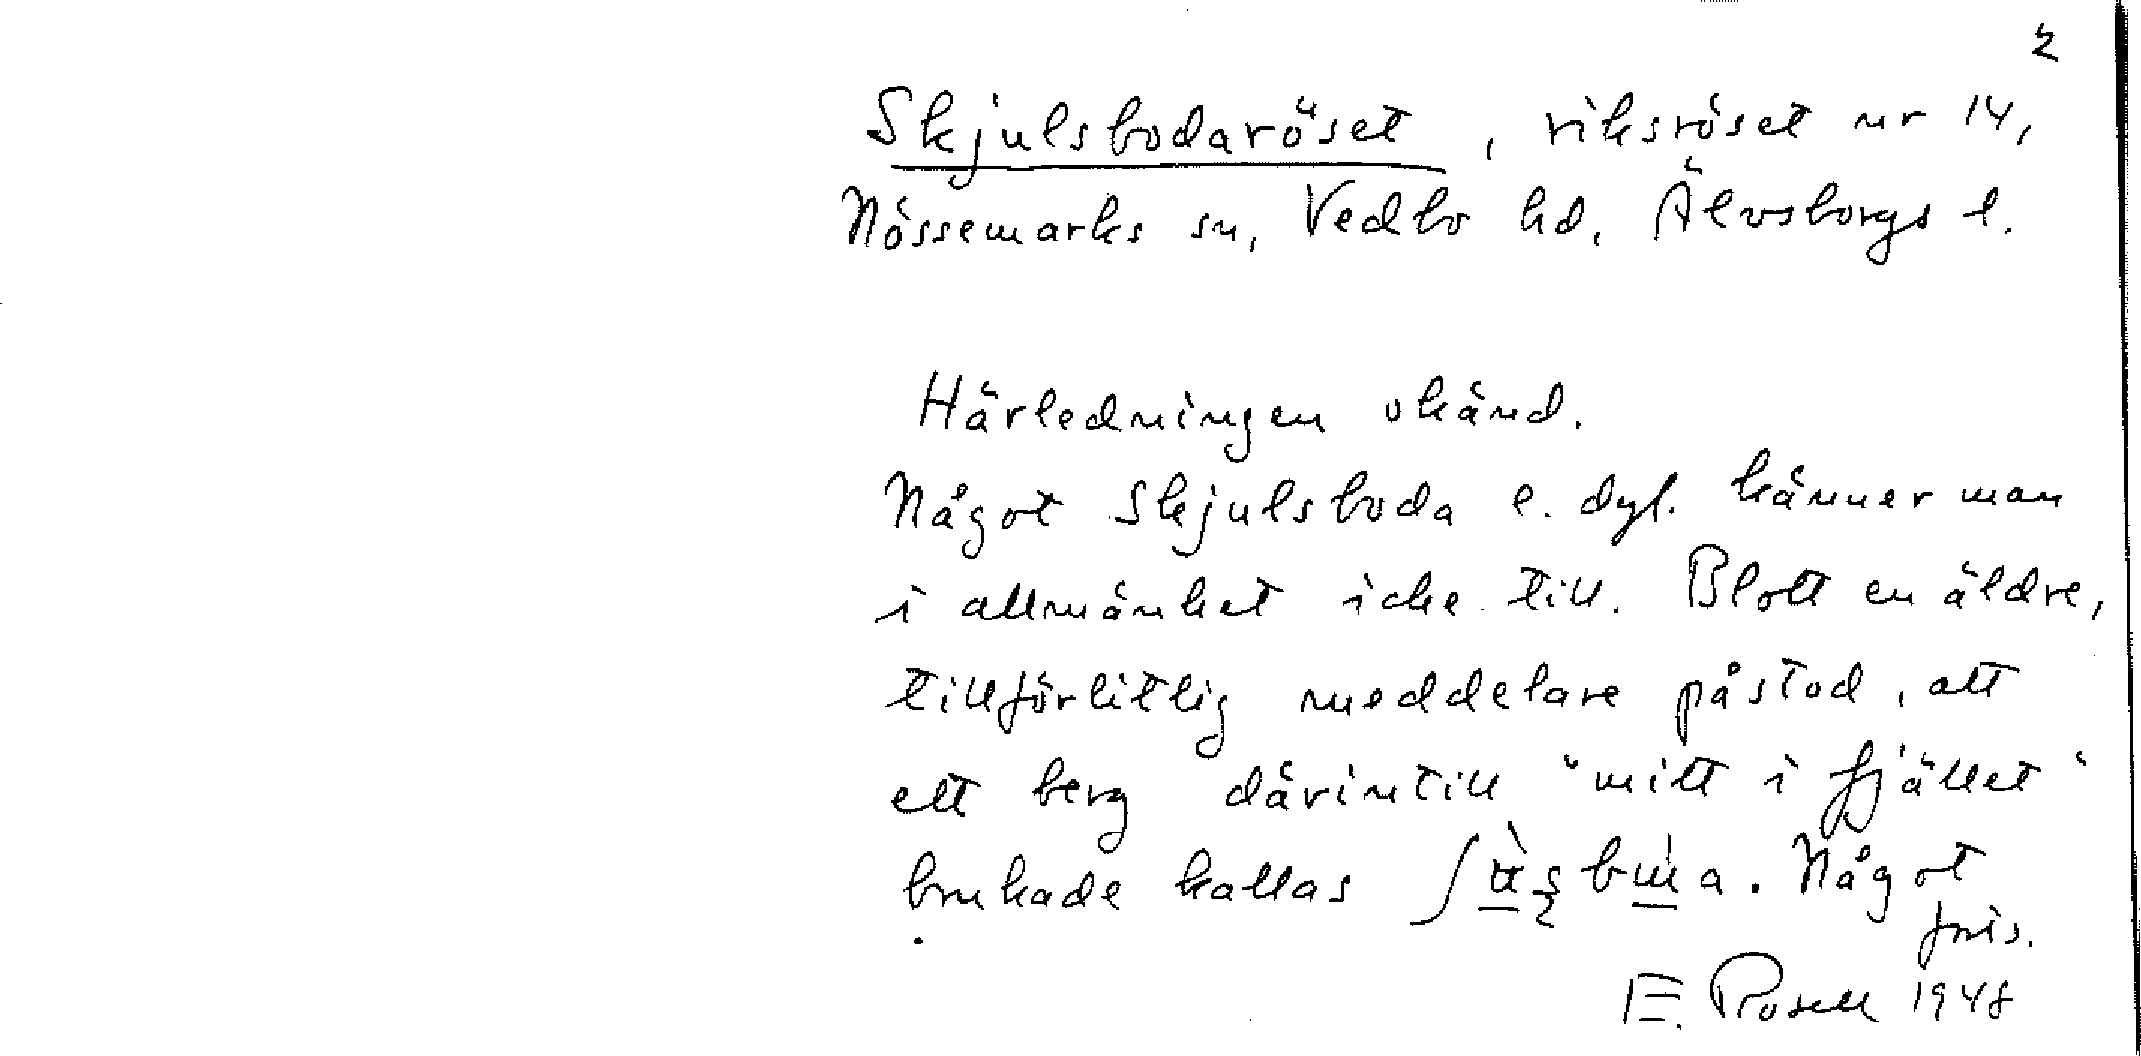 2
Skjulsbodaröset, riksröset nr 14,
Nössemarks sn, Vedbo hd, Älvsborgs l.
Härledningen okänd.
Något Skjulsboda e. dyl. känner man
i allmänhet icke till. Blott en äldre,
tillförlitlig meddelare påstod, att
ett berg därintill "mitt i fjället"
brukade kallas. Något
E. Rosell 1948